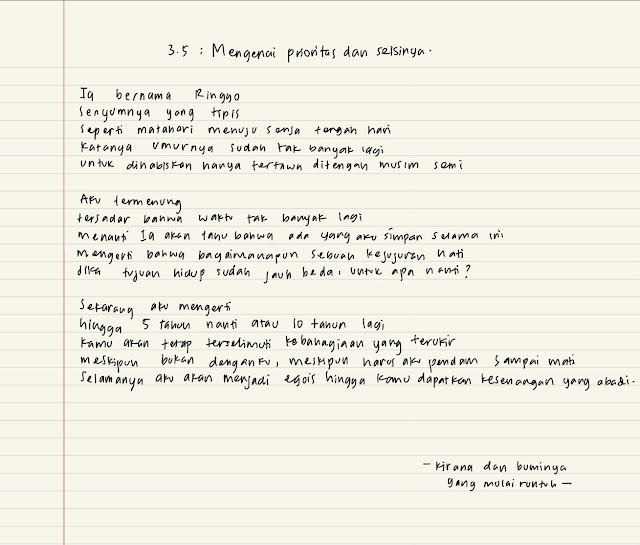 3.5 : Mengenai prioritas dan seisinya.
Ia bernama Ringgo
Senyumnya yang tipis
Seperti matahari menuju senja tengah hari
Katanya umurnya sudah tak banyak lagi
untuk dihabiskan hanya tertawa ditengah musim semi
Aku termenung
tersadar bahwa waktu tak banyak lagi
menanti Ia akan tahu bahwa ada yang aku simpan selama ini
mengerti bahwa bagaimanapun sebuah kejujuran hati
Jika tujuan hidup sudah jauh beda, untuk apa nanti?
Sekarang aku mengerti
hingga 5 tahun nanti atau 10 tahun lagi
Kamu akan tetap terselimuti kebahagiaan yang terukir
meskipun bukan denganku, meskipun harus aku pendam sampai mati
Selamanya aku akan menjadi egois hingga kamu dapatkan kesenangan yang abadi.
- Kirana dan buminya
yang mulai runtuh -